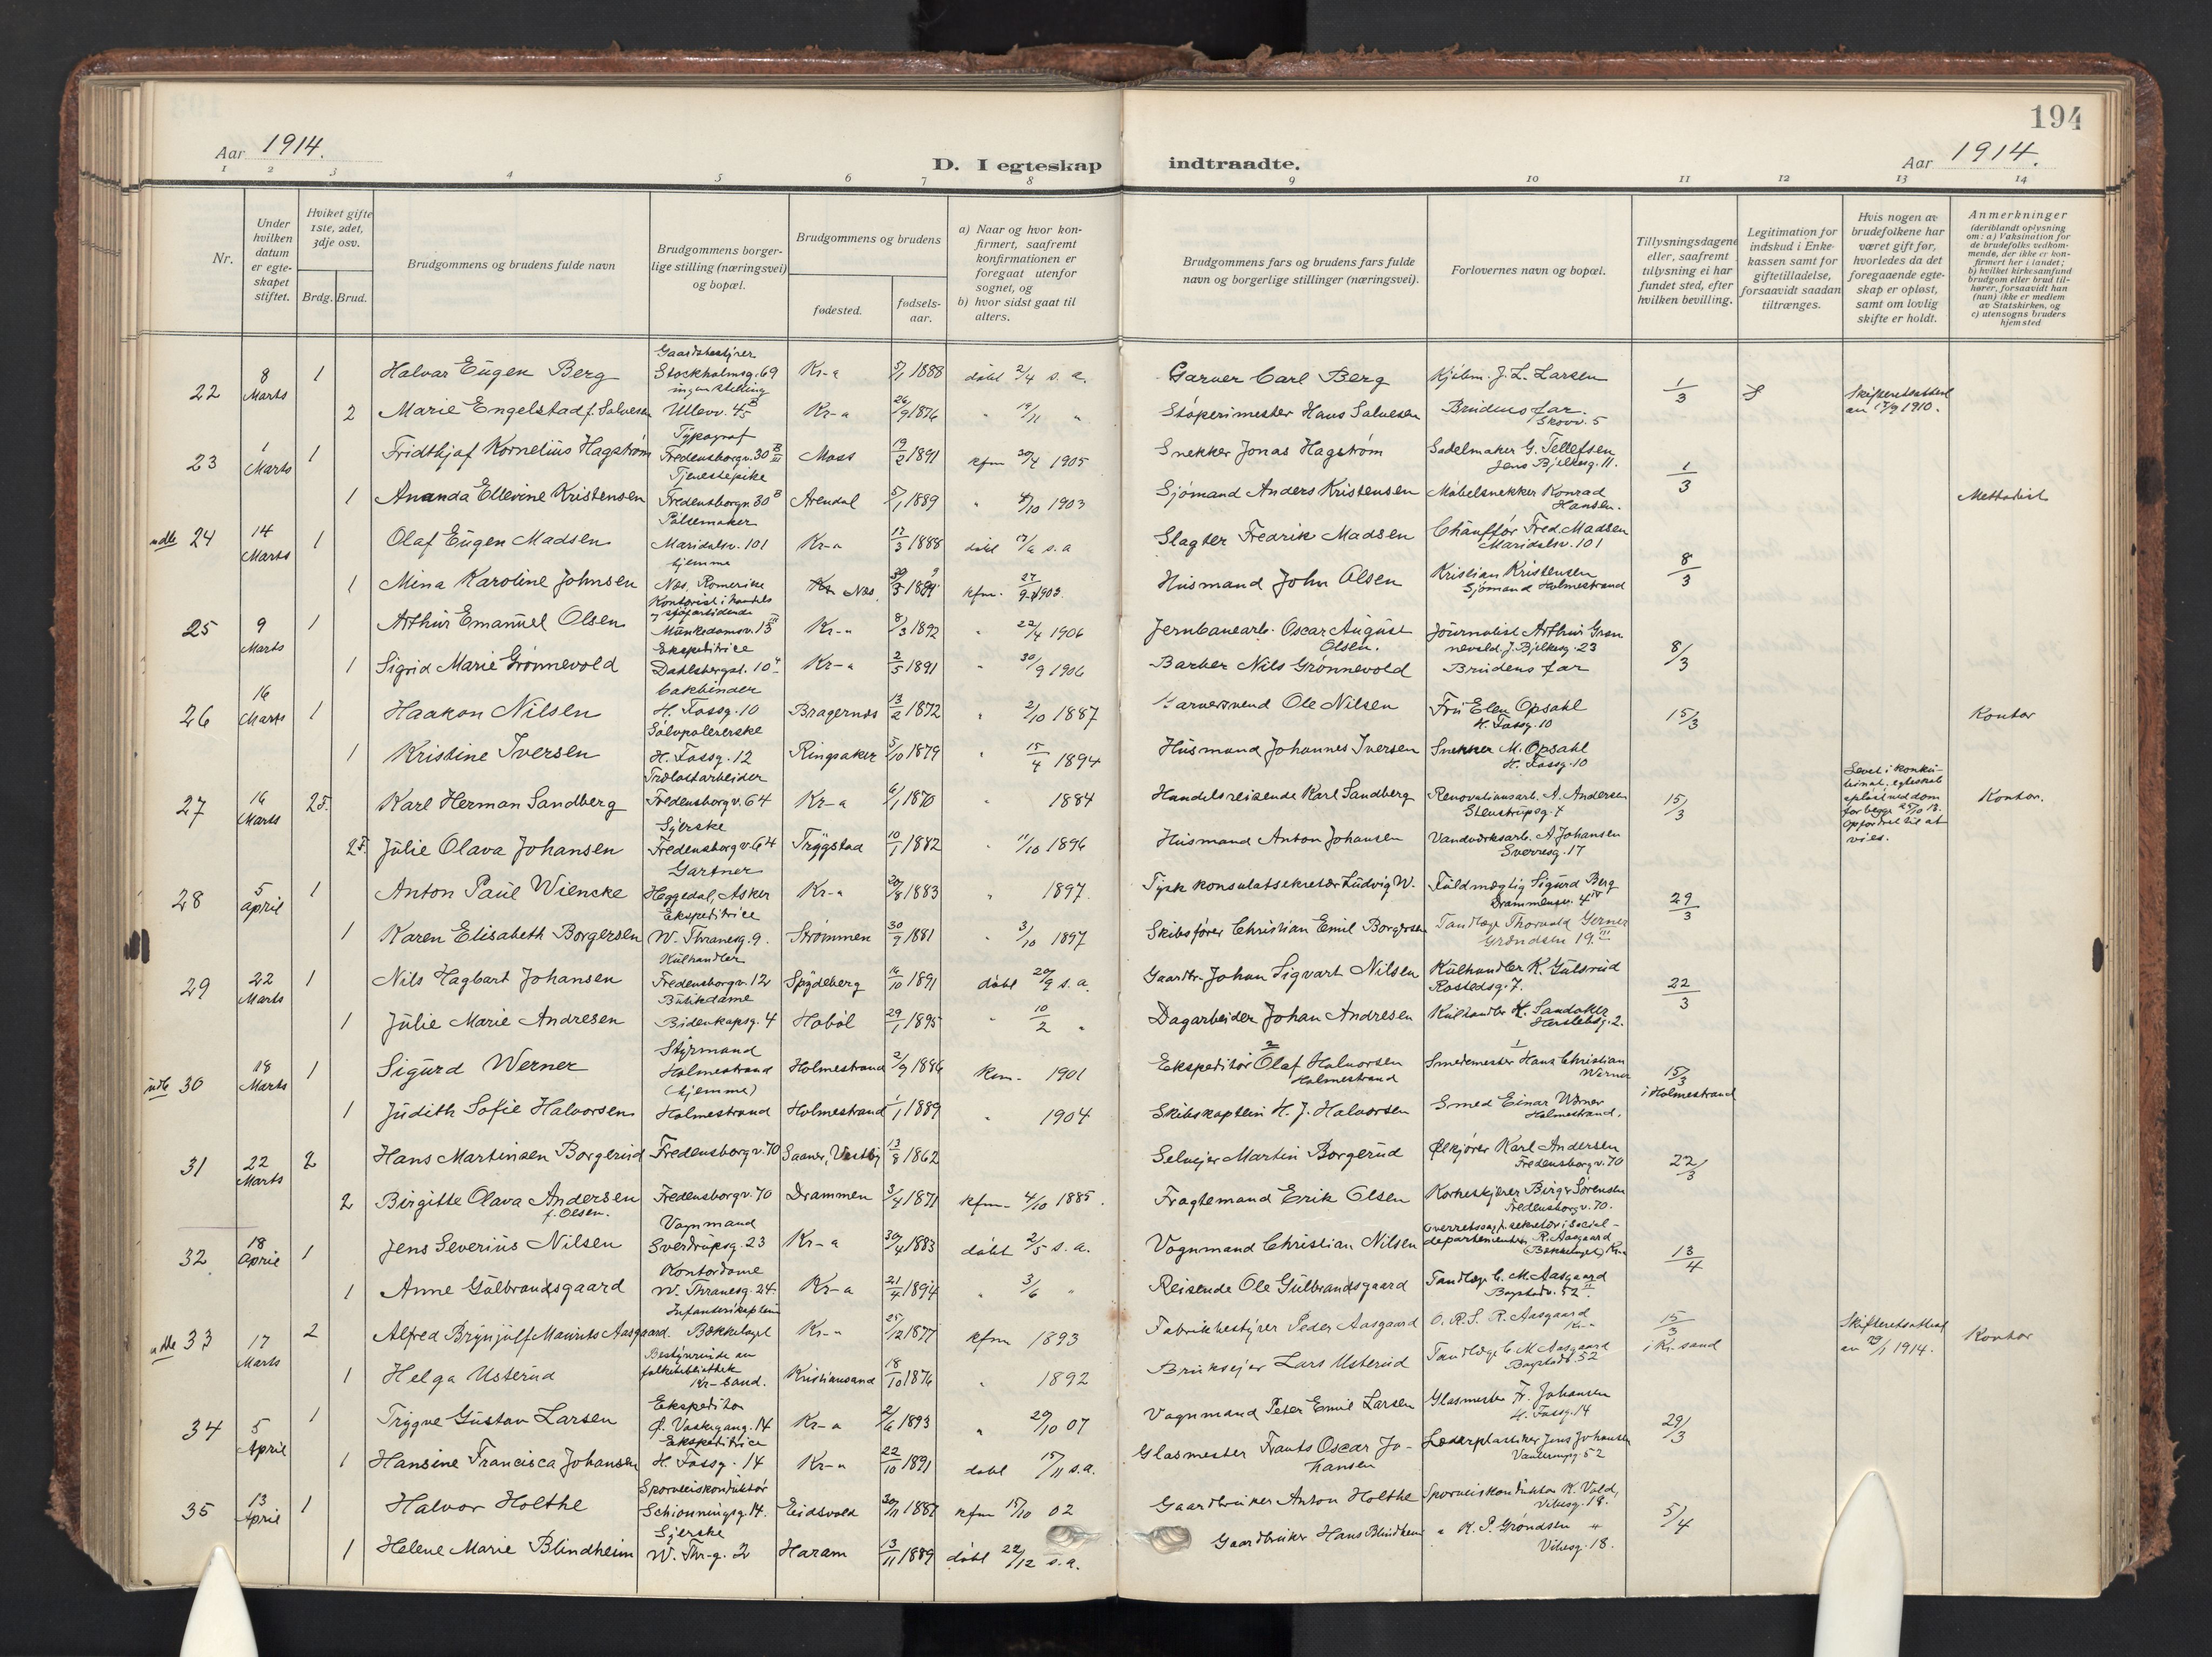 194
Aar 1914.
D. I egteskap indtraadte.
Aar 1914.
1 2 3 4 5 6 7 8 9 10 11 12 13 14
Nr.
Under hvilken datum er egteskapet stiftet.
Hviket gifte 1ste, 2det, 3dje osv.
Brdg. Brud.
Brudgommens og brudens fulde navn
Brudgommens borgerlige stilling (næringsvei) og bopæl.
Brudgommens og brudens
fødested.
fødselsaar.
a) Naar og hvor konfirmert, saafremt konfirmationen er foregaat utenfor sognet, og
b) hvor sidst gaat til alters.
Brudgommens fars og brudens fars fulde navn og borgerlige stillinger (næringsvei).
Forlovernes navn og bopæl.
Tillysningsdagene eller, saafremt tillysning ei har fundet sted, efter hvilken bevilling.
Legitimation for indskud i Enkekassen samt for giftetilladelse, forsaavidt saadan tiltrænges.
Hvis nogen av brudefolkene har været gift før, hvorledes da det foregaaende egteskap er opløst, samt om lovlig skifte er holdt.
Anmerkninger (deriblandt oplysning om: a) Vaksination for de brudefolks vedkommende, der ikke er konfirmert her i landet; b) hvilket kirkesamfund brudgom eller brud tilhører, forsaavidt han (hun) ikke er medlem av Statskirken, og c) utensogns bruders hjemsted
22 8 Marts 1 Halvar Eugen Berg Gaardsbestyrer Stockholmsg. 69 Kr-a 5/1 1888 døbt 2/4 s. a. Garver Carl Berg Kjøbm. J. L. Larsen 1/3
2 Marie Engelstad f. Salvesen ingen stilling Ullevv. 45B Kr-a 26/9 1876 " 19/11 " Støperimester Hans Salvesen Brudens far. Skovv. 5 Skifteretsattest av 17/9 1910.
23 1 Marts 1 Fridthjof Kornelius Hagstrøm Typograf Fredensborgv. 30B III Moss 19/2 1891 kfm 30/4 1905 Snekker Jonas Hagstrøm Sadelmaker G. Tellefsen Jens Bjelkesg. 11. 1/3
1 Ananda Ellevine Kristensen Tjenestepike Fredensborgv. 30B Arendal 5/1 1889 " 4/10 1903 Sjømand Anders Kristensen Møbelsnekker Konrad Hansen. Methodist
udb 24 14 Marts 1 Olaf Eugen Madsen Pølsemaker Maridalsv. 101 Kr-a 17/3 1888 døbt s. a Slagter Fredrik Madsen Chauffør Fred. Madsen Maridalsv. 101 8/3
1 Mina Karoline Johnsen hjemme Nes, Romerike Nes 1889 kfm. 27/9 1903. Husmand John Olsen Kristian Kristensen Sjømand Holmestrand
25 9 Marts 1 Arthur Emanuel Olsen Kontorist i handels og sjøfartstidende Munkedamsv. 15 III Kr-a 8/3 1892 " 22/4 1906 Jernbanearb. Oscar August Olsen. Journalist Arthur Grønnevold. J. Bjelkesg. 23 8/3
1 Sigrid Marie Grønnevold Ekspeditrice Dahlsbergst. 10 Kr-a 2/5 1891 " 30/9 1906 Barber Nils Grønnevold Brudens far
26 16 Marts 1 Haakon Nilsen Bokbinder H. Fossg. 10 Bragernes 13/2 1872 " 2/10 1887 Garversvend Ole Nilsen Fru Elen Opsahl H. Fossg. 10 15/3 Kontor
1 Kristine Iversen Sølvpolererske H. Fossg. 12 Ringsaker 5/10 1879 " 15/4 1894 Husmand Johannes Iversen Snekker M. Opsahl H. Fossg. 10
27 16 Marts 2 Karl Herman Sandberg Trælastarbeider Fredensborgv. 64 Kr-a 6/1 1870 " 1884 Handelsreisende Karl Sandberg Renovationsarb. A. Andersen Stenstrupsg. 7 15/3 Levet i konkubinat, egteskab opløst ved dom for begge 25/10 13. Opfordret til at vies. Kontor.
2 Julie Olava Johansen Syerske Fredensborgv. 64 Trygstad 10/1 1882 " 11/10 1896 Husmand Anton Johansen Vandverksarb. A Johansen Sverresg. 17
28 5 April 1 Anton Paul Wiencke Gartner Heggedal, Asker Kr-a 20/8 1883 " 1897 Tysk konsulatsekretær Ludvig W. Fuldmægtig Sigurd Berg Drammensv. 4 IV 29/3
1 Karen Elisabeth Borgersen Ekspeditrice W. Thranesg. 9. Strømmen 30/9 1881 " 3/10 1897 Skibsfører Christian Emil Borgersen Tandlæge Thorvald Gerner Grændsen 19. III
29 22 Marts 1 Nils Hagbart Johansen Kulhandler Fredensborgv. 12 Spydeberg 16/10 1891 døbt 20/9 s. a. Gaardbr. Johan Sigvart Nilsen Kulhandler K. Gulsrud Rostedsg. 7. 22/3
1 Julie Marie Andresen Butikdame Bidenkapsg. 4 Hobøl 29/1 1895 " 10/2 " Dagarbeider Johan Andresen Kulhandler H. Sandaker Herslebsg. 2.
udb 30 18 Marts 1 Sigurd Werner Styrmand Holmestrand (hjemme) Holmestrand 2/9 1886 kfm. 1901 Ekspeditør Olaf Halvorsen Holmestrand Smedemester Hans Christian Werner 15/3 i Holmestrand
1 Judith Sofie Halvorsen Holmestrand Holmestrand 1/1 1889 " 1904 Skibskaptein H. J. Halvorsen Smed Einar Werner Holmestrand.
31 22 Marts 2 Hans Martinsen Borgerud Fredensborgv. 70 Saaner, Vestby 13/8 1862 Selveier Martin Borgerud Ølkjører Karl Andersen Fredensborgv. 70 22/3
2 Birgitte Olava Andersen f. Olsen. Fredensborgv. 70 Drammen 3/4 1871 kfm. 4/10 1885. Fragtemand Erik Olsen Birger Sørensen Fredensborgv. 70.
32 18 April 1 Jens Severius Nilsen Vognmand Sverdrupsg. 23 Kr-a 30/4 1883 døbt 2/5 s. a. Vognmand Christian Nilsen Overretssagf. sekretær i Socialdepartementet R. Aasgaard Bækkelaget, Kra 13/4
1 Anne Gulbrandsgaard Kontordame W. Thranesg. 24 Kr-a 21/4 1894 " 3/6 " Reisende Ole Gulbrandsgaard Tandlæge C. M. Aasgaard Bogstadv. 52 II
udb 33 17 Marts 2 Alfred Brynjulf Maurits Aasgaard. Infanterikaptein Bækkelaget Kr-a 25/12 1877 kfm 1893 Fabrikbestyrer Peder Aasgaard O. R. S. R. Aasgaard Kr-a 15/3 i Kr. sand Skifteretsattest av 29/1 1914. Kontor
1 Helga Usterud Bestyrerinde av folkebibliothek Kr-sand. Kristiansand 18/10 1876 " 1892 Bruksejer Lars Usterud Tandlæge C. M. Aasgaard Bogstadv. 52
34 5 April 1 Trygve Gustav Larsen Ekspeditør Ø. Vaskegang. 14 Kr-a 2/6 1893 " 20/10 07 Vognmand Peter Emil Larsen Glasmester Fr. Johansen H. Fossg. 14 29/3
1 Hansine Francisca Johansen Ekspeditrice H. Fossg. 14 Kr-a 22/10 1891 døbt 15/11 s. a. Glasmester Frants Oscar Johansen Jens Johansen 52
35 13 April 1 Halvor Holthe Sporveiskonduktør Schionningsg. 14. Eidsvold 30/11 1887 kfm 15/10 02 Gaardbruker Anton Holthe Sporveiskonduktør K. Vold, Vibesg. 18. 5/4
1 Helene Marie Blindheim Syerske W. Thr-g. 2 Haram 13/11 1889 døbt 22/12 s. a. Gaardbruker Hans Blindheim " K. P. Grøndsen " Vibesg. 18.